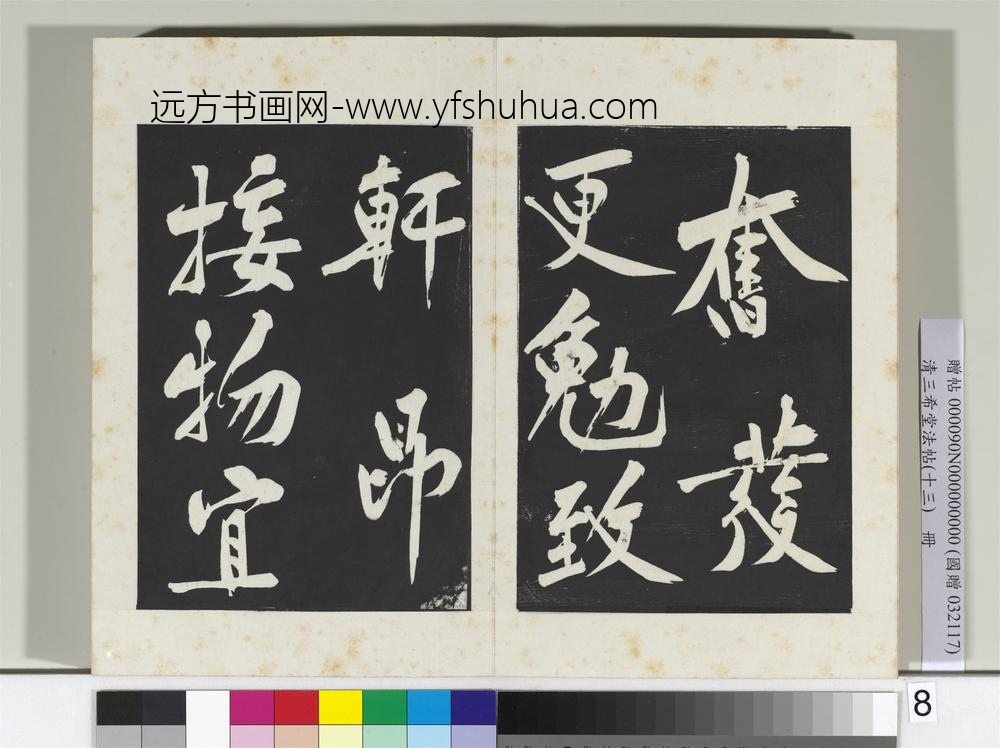 远方书画网-www.yfshuhua.com
奮發
更勉致
軒昂
接物宜
贈帖 000090N000000000 (國贈 032117)
清三希堂法帖(十三) 冊
8